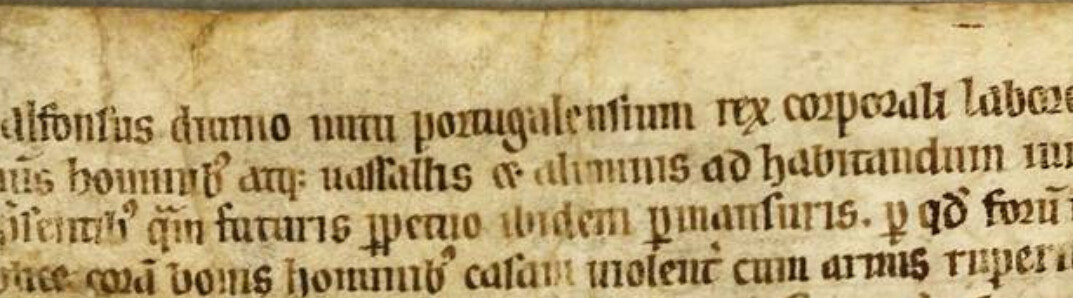 alfonsus diuino nutu portugalensium rex corporali labore
hominibꝰ atqꝫ uassallis & alumnis ad habitandum
p̃sentibꝰ q̃m futuris ꝑpetuo ibidem ꝑmansuris. ꝑ qd̃ forũ
corã bonis hominibꝰ casam uiolent̃ cum armis ruperit